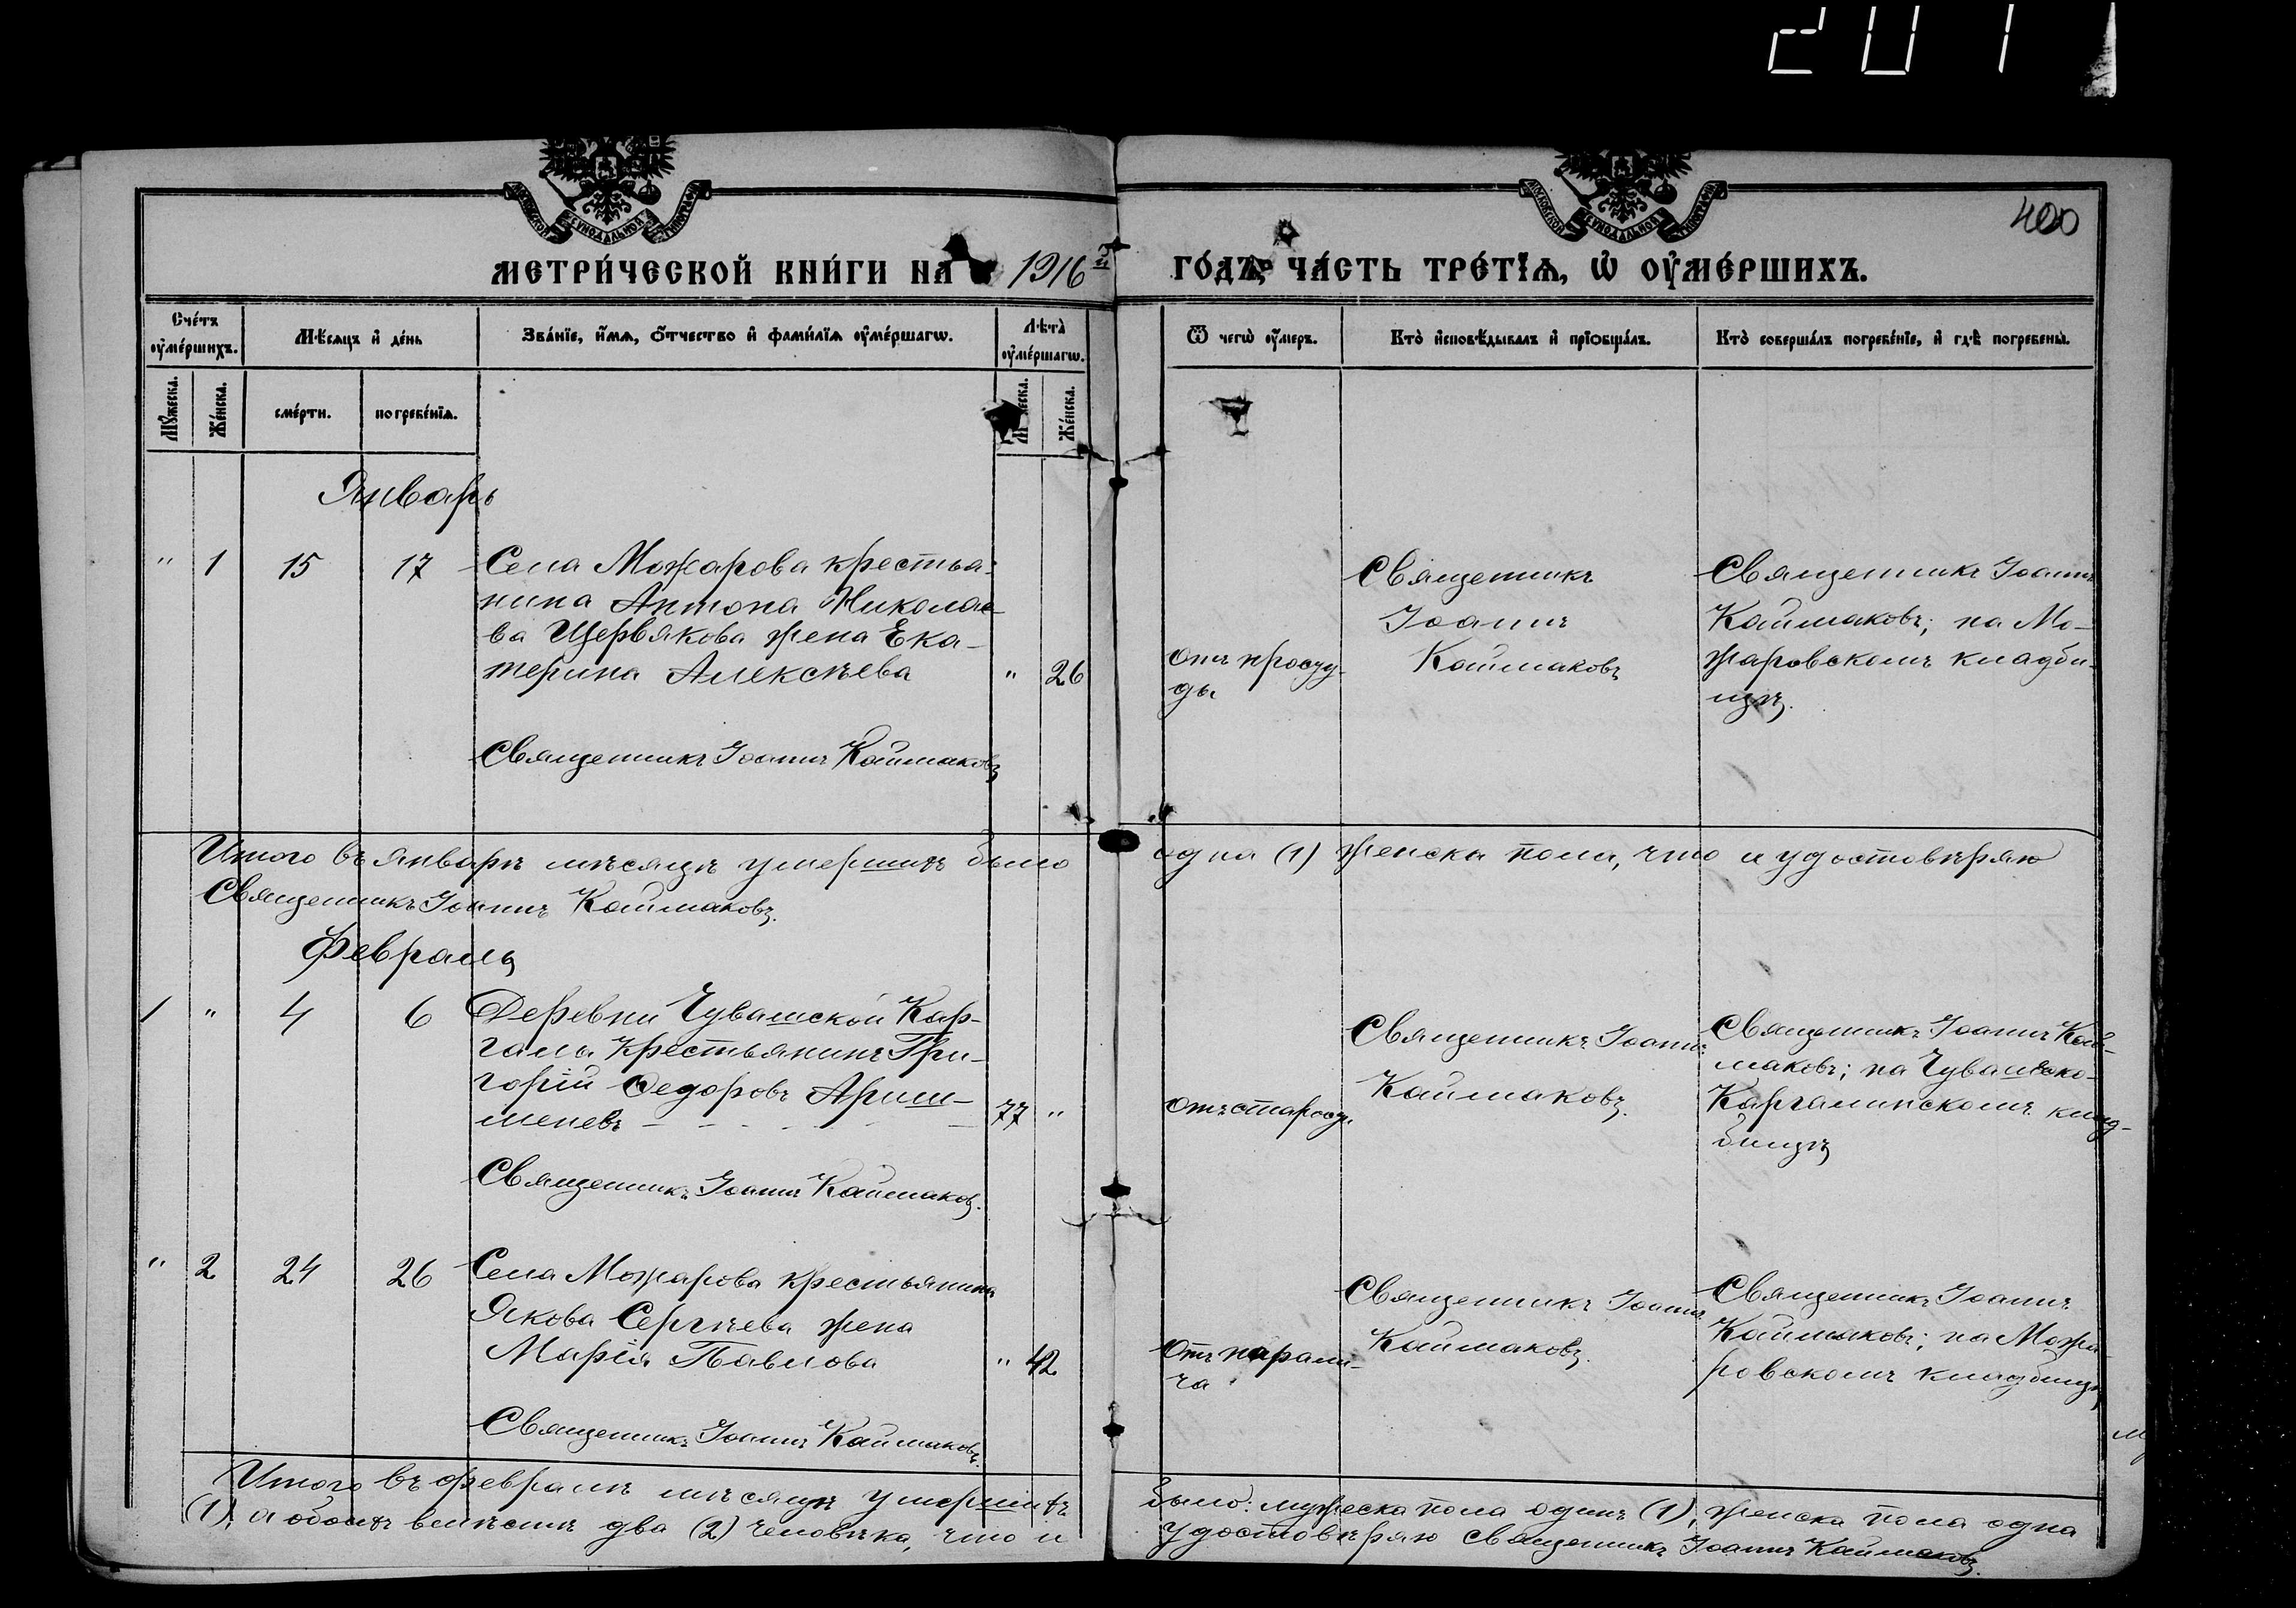 201
400
МОСКОВСКОЙ СѴНОДАЛЬНОЙ ТИПОГРАФІИ
МОСКОВСКОЙ СѴНОДАЛЬНОЙ ТИПОГРАФІИ
МЕТРИ́ЧЕСКОЙ КНИ́ГИ НА 1916й ГО́ДЪ, ЧА́СТЬ ТРЕ́ТЇѦ, Ѡ ОУМЕ́РШИХЪ.
Сче́тъ оуме́ршихъ.
Мѣсяцъ и де́нь
Зва́нїе, и́мѧ, о́тчество и фами́лїѧ оуме́ршагѡ.
Лѣта̀ оуме́ршагѡ.
Ѿ чегѡ̀ оу́меръ.
Кто̀ исповѣ́дывалъ и прїобща́лъ.
Кто̀ соверша́лъ погребе́нїе, и гдѣ̀ погребены̀.
Мꙋ́жеска.
Же́нска.
сме́рти.
погребе́нїѧ.
Же́нска.
Январь
" 1 15 17 Села Можарова крестья-
нина Антона Николае-
ва Щервякова жена Ека-
терина Алексѣева " 26
Священникъ Іоаннъ Каймаковъ
Отъ просту-
ды
Священникъ
Іоаннъ
Каймаковъ
Священникъ Іоаннъ
Каймаковъ; на Мо-
жаровскомъ кладби-
щѣ.
Итого въ январѣ мѣсяцѣ умершихъ было одна (1) женска пола, что и удостовѣряю
Священникъ Іоаннъ Каймаковъ.
Февраль
1 " 4 6 Деревни Чувашской Кар-
галы крестьянинъ Гри-
горій Федоровъ Ариш-
меневъ 77 "
Священникъ Іоаннъ Каймаковъ.
Отъ старости.
Священникъ Іоаннъ
Каймаковъ.
Священникъ Іоаннъ Кай-
маковъ; на Чувашско-
Каргалинскомъ клад-
бищѣ
" 2 24 26 Села Можарова крестьянина
Якова Сергѣева жена
Марія Павлова " 42
Священникъ Іоаннъ Каймаковъ.
Отъ парали-
ча
Священникъ Іоаннъ
Каймаковъ.
Священникъ Іоаннъ
Каймаковъ; на Можа-
ровскомъ кладбищѣ
Итого въ февралѣ мѣсяцѣ умершихъ было: мужеска пола одинъ (1), женска пола одна
(1), а обоихъ вмѣстѣ два (2) человѣка, что и удостовѣряю Священникъ Іоаннъ Каймаковъ.